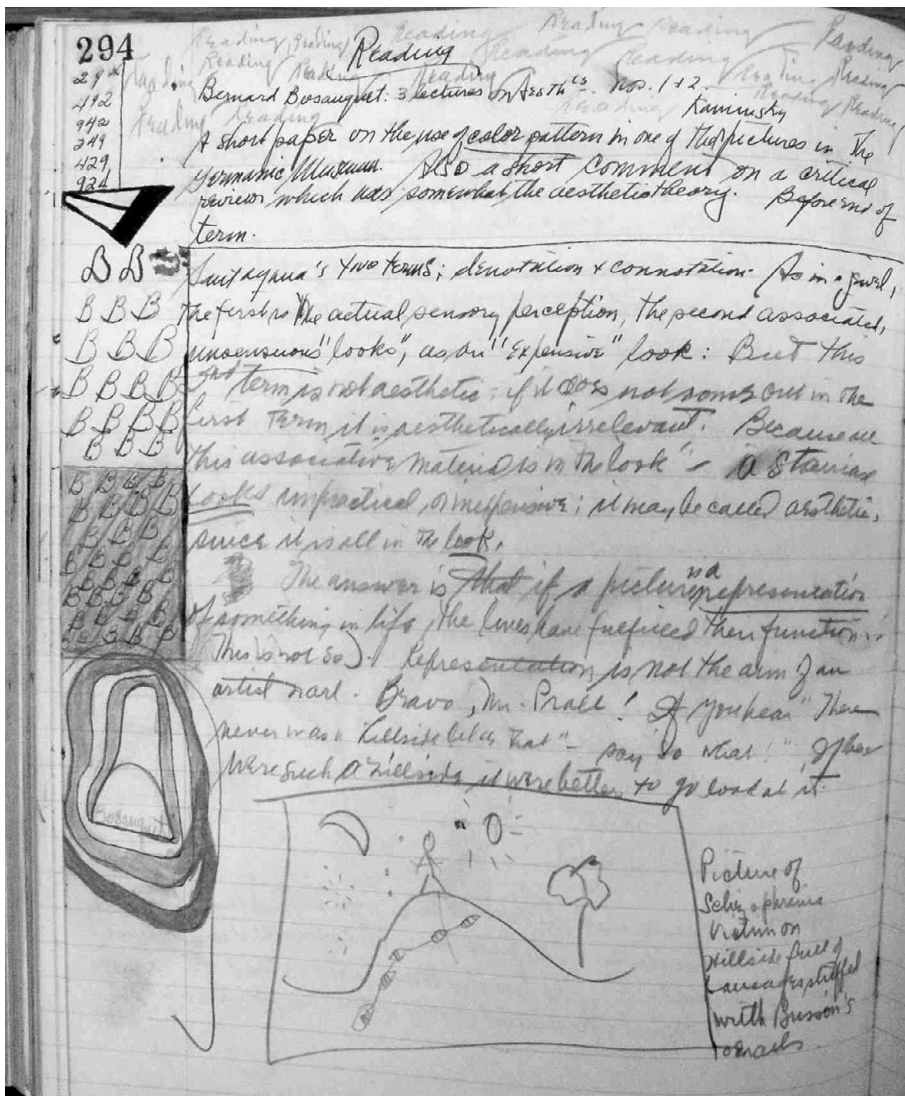 294
Reading
294
492
942
249
429
924
Bernard Bosanquet: 3 lectures on Aesthcs. Nos. 1+2.
Kaminsky
A short paper on the use of color pattern in one of the pictures in the
Germanic Museum. Also a short comment on a critical
review which has somewhat the aesthetic theory. Before end of
term.
B B
Santayana's two terms; denotation + connotation. As in a jewel,
B B B
the first is the actual sensory perception, the second associated,
B B B
unsensuous "looks", as an "expensive" look: But this
B B B B
2nd term is not aesthetic: if it does not come out in the
B B B B
first term it is aesthetically irrelevant. Because all
B B B
this associative material is in the "look" – a staircase
looks impractical, or inexpensive; it may be called aesthetic,
since it is all in the look.
The answer is that if a picture is a representation
of something in life, the lines have fulfilled their function.
This is not so). Representation is not the aim of an
artist Bravo, Mr. Prall! If you hear "There
never was a hillside like that" – say "so what!" If there
were such a hillside it were better to go look at it.
Bosanquet
Picture of
Schizophrenic
Victim on
Hillside full of
sausages stuffed
with